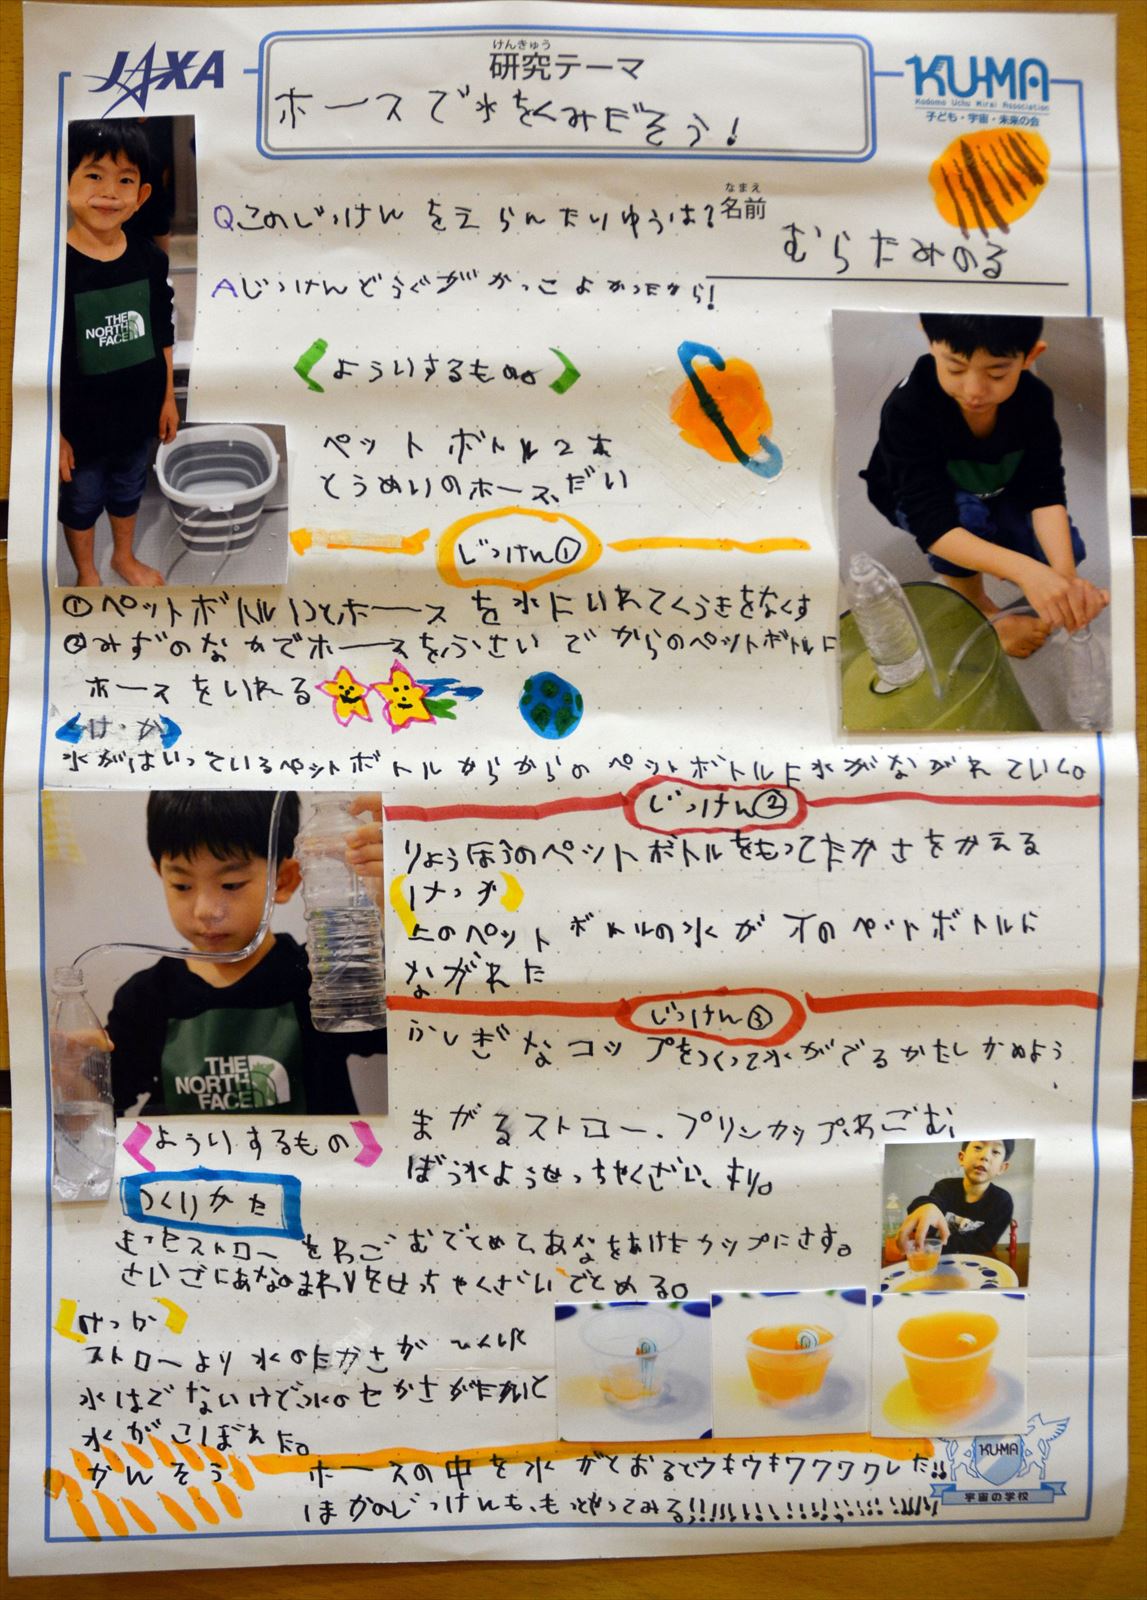 JAXA
けんきゅう
研究テーマ
ホースで水をくみだそう!
KU-MA
Kodomo Uchu Mirai Association
子ども・宇宙・未来の会
なまえ
名前
むらたみのる
Qこのじっけんをえらんだりゆうは?
Aじっけんどうぐがかっこよかったから!
THE
NORTH
FACE
よういするもの。
ペットボトル2本
とうめいのホース、だい
じっけん①
①ペットボトル1つとホースを水にいれてくうきをなくす
②みずのなかでホースをふさいでからのペットボトルに
ホースをいれる
け、か
水がはいっているペットボトルからからのペットボトルに水がながれていく。
じっけん②
りょうほうのペットボトルをもってたかさをかえる
けっか
上のペットボトルの水が下のペットボトルに
ながれた
THE
NORTH
FACE
じっけん③
ふしぎなコップをつくって水がでるかたしかめよう
よういするもの
まがるストロー、プリンカップ、わごむ、
ぼう水ようせっちゃくざい、きり。
つくりかた
まったストローをわごむでとめて、あなをあけたカップにさす。
さいごにあなのまわりをせっちゃくざいでとめる。
けっか
ストローより水のたかさがひくいと
水はでないけど水のたかさがたかいと
水がこぼれた。
かんそう
ホースの中を水がとおるとウキウキワクワクした!!
ほかのじっけんも、もっとやってみる!!!!!!!!!!!!!!!!!!!!
KU-MA
宇宙の学校